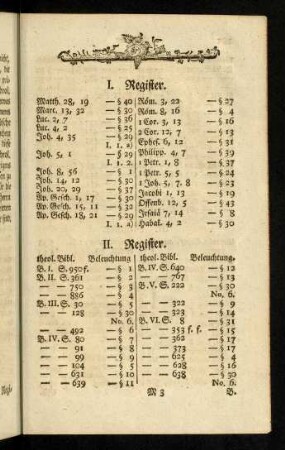 I. Register.
Matth. 28, 19 — § 40
Marc. 13, 32 — § 30
Luc. 2, 7 — § 36
Luc. 4, 2 — § 25
Joh. 4, 35 — § 29
I. 1. a)
Joh. 5, 1 — § 29
I. 1. f)
Joh. 8, 56 — § 1
Joh. 14, 12 — § 30
Joh. 20, 29 — § 37
Ap. Gesch. 1, 17 — § 30
Ap. Gesch. 15, 11 — § 32
Ap. Gesch. 18, 21 — § 29
I. 1. a)
Röm. 3, 22 — § 27
Röm. 8, 16 — § 4
1 Cor. 3, 13 — § 16
2 Cor. 12, 7 — § 13
Ephes. 6, 12 — § 31
Philipp. 4, 7 — § 39
1 Petr. 1, 8 — § 37
1 Petr. 5, 5 — § 24
1 Joh. 5, 7. 8 — § 23
Jacobi 1, 13 — § 19
Offenb. 12, 5 — § 43
Jesaiä 7, 14 — § 8
Habak. 2, 4 — § 30
II. Register.
theol. Bibl. Beleuchtung.
B. I. S. 950f. — § 1
B. II. S. 361 — § 2
— — 750 — § 3
— — 886 — § 4
B. III. S. 30 — § 5
— — 128 — § 30
No. 6.
— — 492 — § 6
B. IV. S. 80 — § 7
— — 91 — § 8
— — 99 — § 9
— — 104 — § 5
— — 631 — § 10
— — 639 — § 11
theol. Bibl. Beleuchtung.
B. IV. S. 640 — § 12
— — 767 — § 13
B. V. S. 222 — § 30
No. 6.
— — 322 — § 9
— — 323 — § 14
B. VI. S. 8 — § 31
— — 353 f. f. — § 15
— — 362 — § 17
— — 373 — § 17
— — 625 — § 4
— — 628 — § 16
— — 638 — § 30
No. 6.
M 3 B.